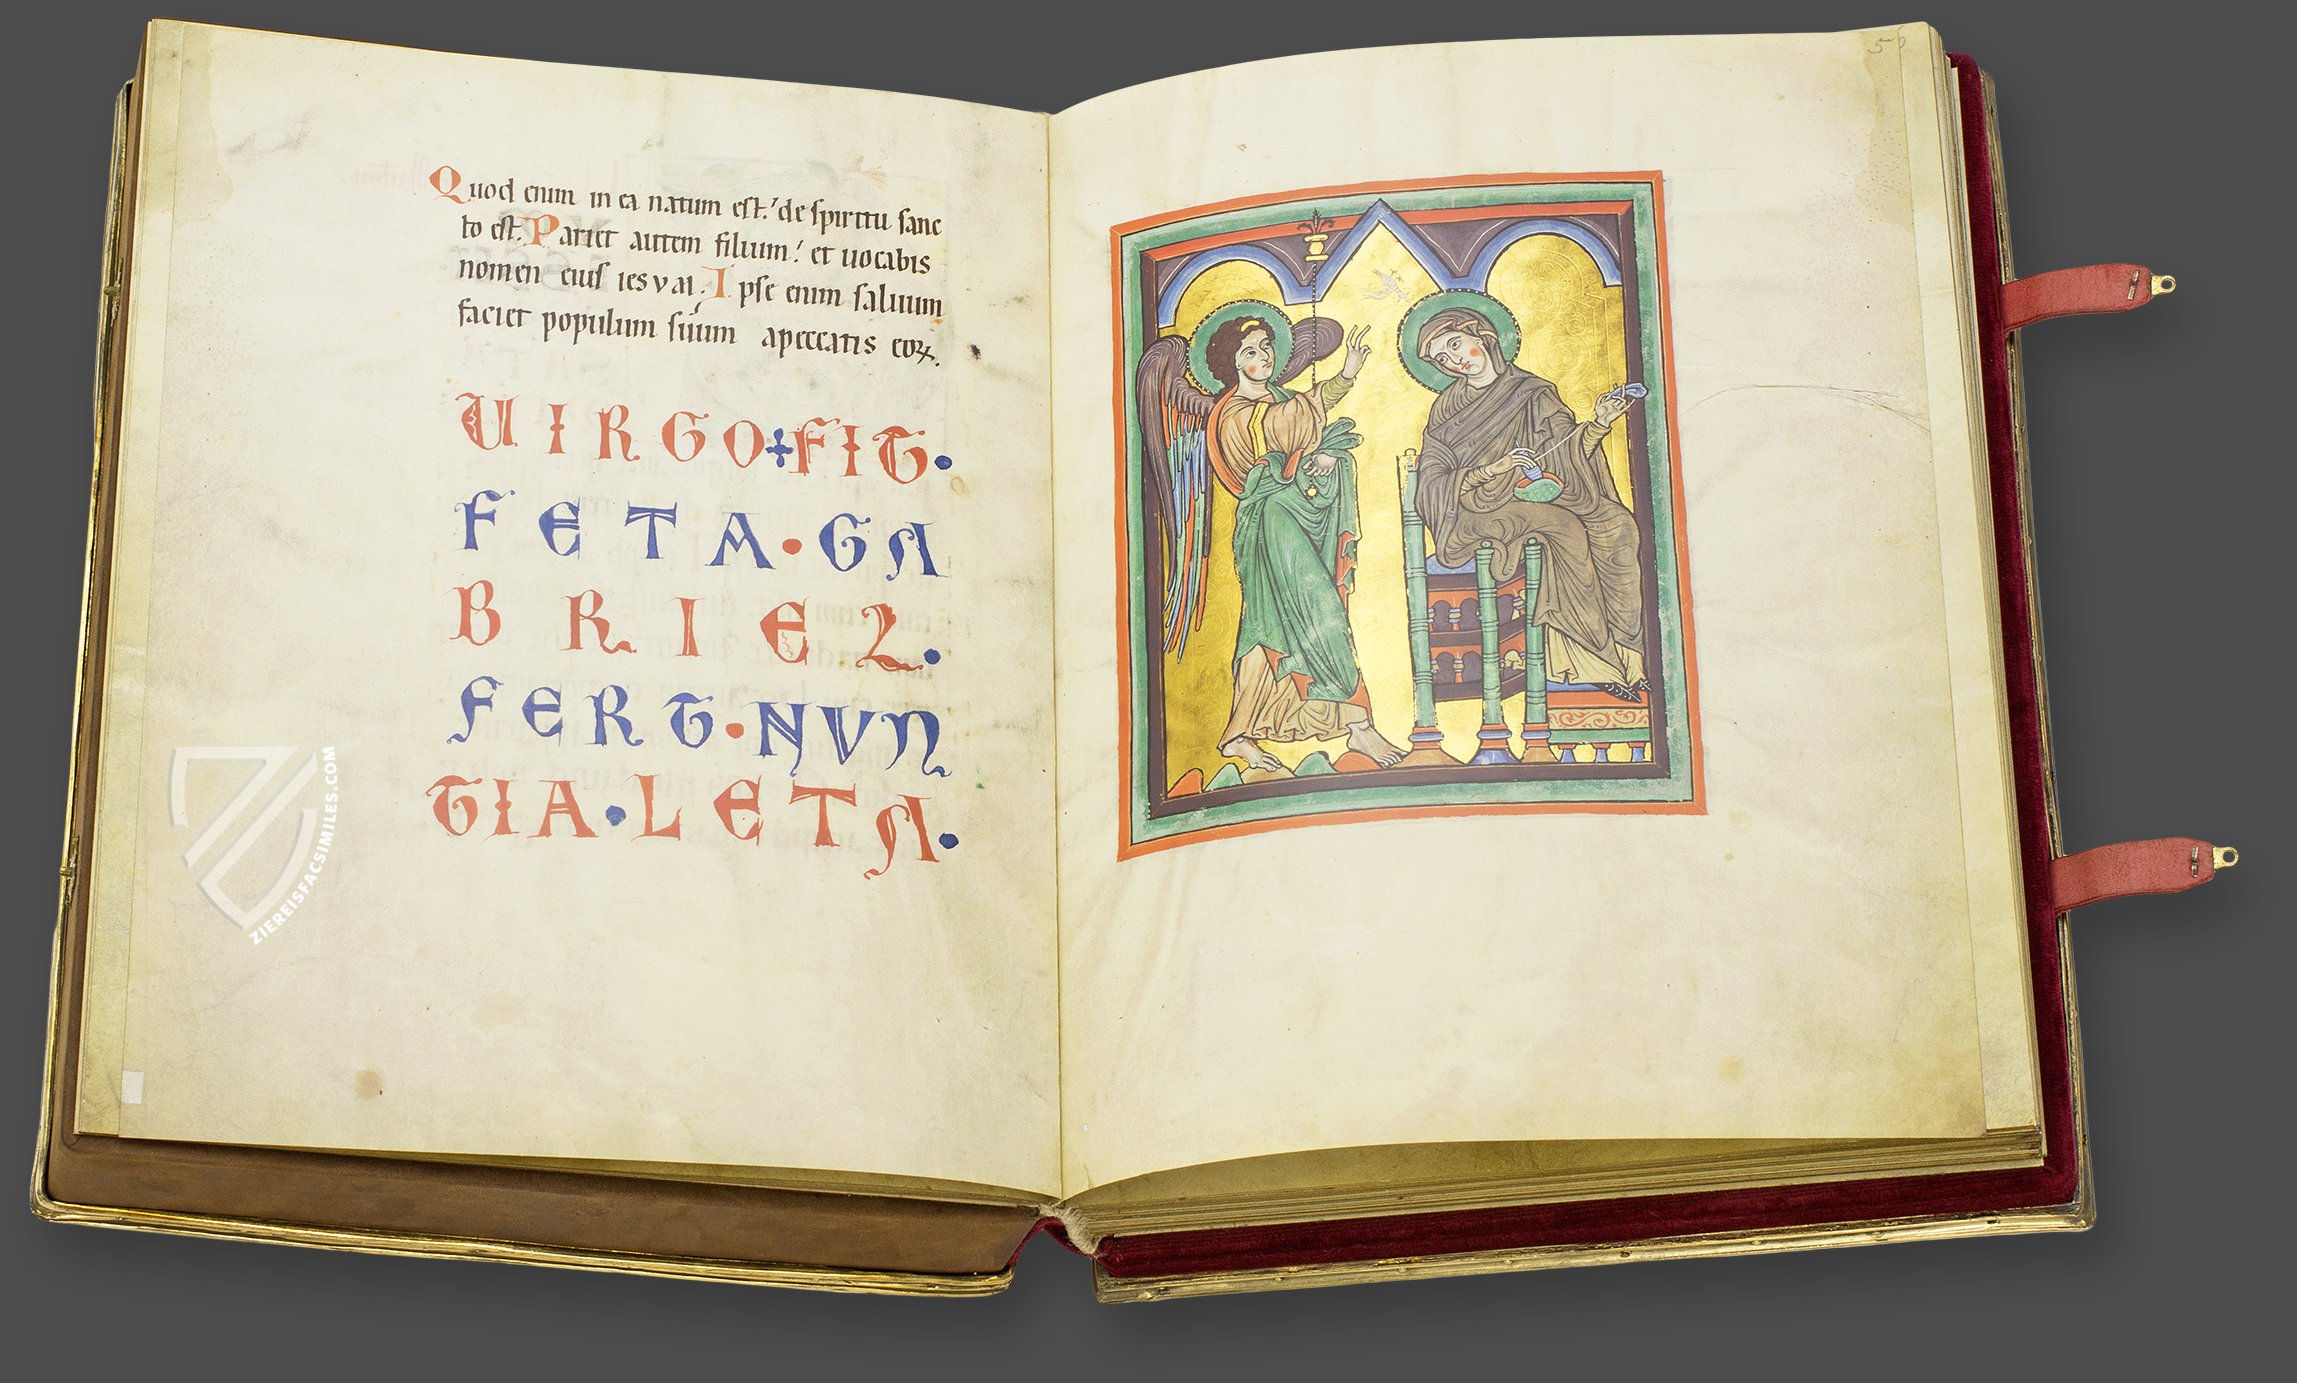 Quod enim in ea natum est. de spiritu sanc
to est. Pariet autem filium. et uocabis
nomen eius iesvm. Ipse enim saluum
faciet populum suum apeccatis eoꝝ.
UIRGO FIT.
FETA. GA
BRIEL.
FERT. NVN
TIA. LETA.
56
ZIEREISFACSIMILES.COM